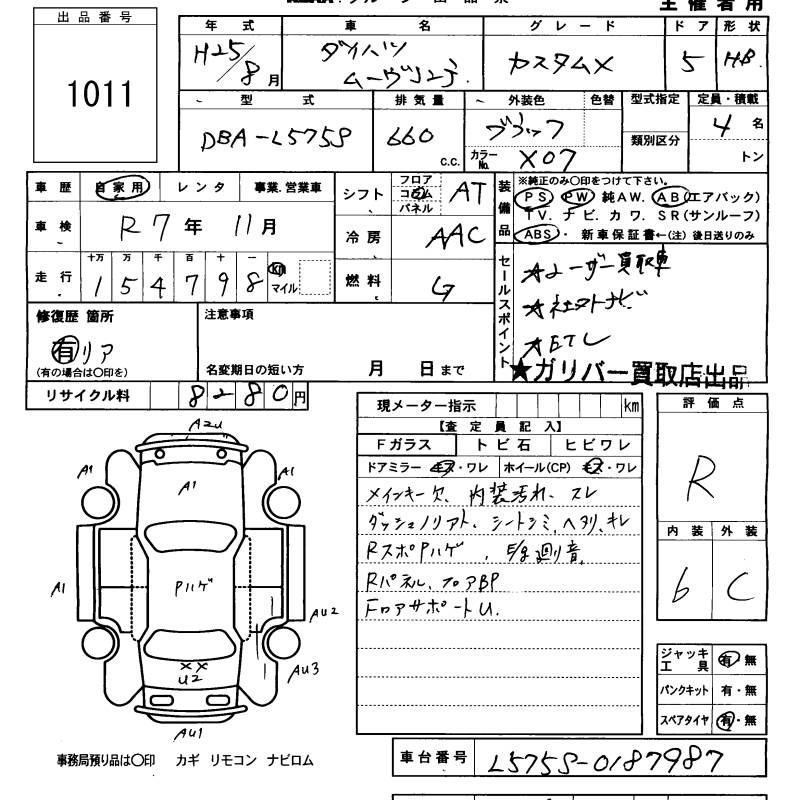 出品番号
1011
年式 車名 グレード ドア 形状
H25/8月 ダイハツ ムーヴコンテ カスタムX 5 HB
型式 排気量 外装色 色替 型式指定 定員・積載
DBA-L575S 660 c.c. ブラック 類別区分 4名
カラーNo. X07 トン
車歴 自家用 レンタ 事業.営業車
車検 R7年 11月
走行 十万 万 千 百 十 一
154798 km マイル
シフト フロア コラム パネル AT
冷房 AAC
燃料 G
装備品 ※純正のみ○印をつけて下さい。
PS PW 純AW. AB(エアバッグ)
TV. ナビ. カワ. SR(サンルーフ)
ABS ・ 新車保証書←(注) 後日送りのみ
セールスポイント
★ユーザー買取車
★社外ナビ
★ETC
★ガリバー買取店出品
修復歴 箇所
有 リア
(有の場合は○印を)
注意事項
名変期日の短い方 月 日まで
リサイクル料 8280円
現メーター指示 km
【査定員記入】
Fガラス トビ石 ヒビワレ
ドアミラー キズ・ワレ ホイール(CP) キズ・ワレ
メインキー欠、内装汚れ、スレ
ダッシュノリアト、シートシミ、ヘタリ、キレ
RスポPハゲ、E/g廻り音
Rパネル、フロアBP
FロアサポートU.
評価点
R
内装 外装
6 C
ジャッキ工具 有・無
パンクキット 有・無
スペアタイヤ 有・無
A2U
A1
A1
A1
A1
Pハゲ
AU2
XX
U2
AU3
AU1
事務局預り品は○印 カギ リモコン ナビロム
車台番号 L575S-0187987